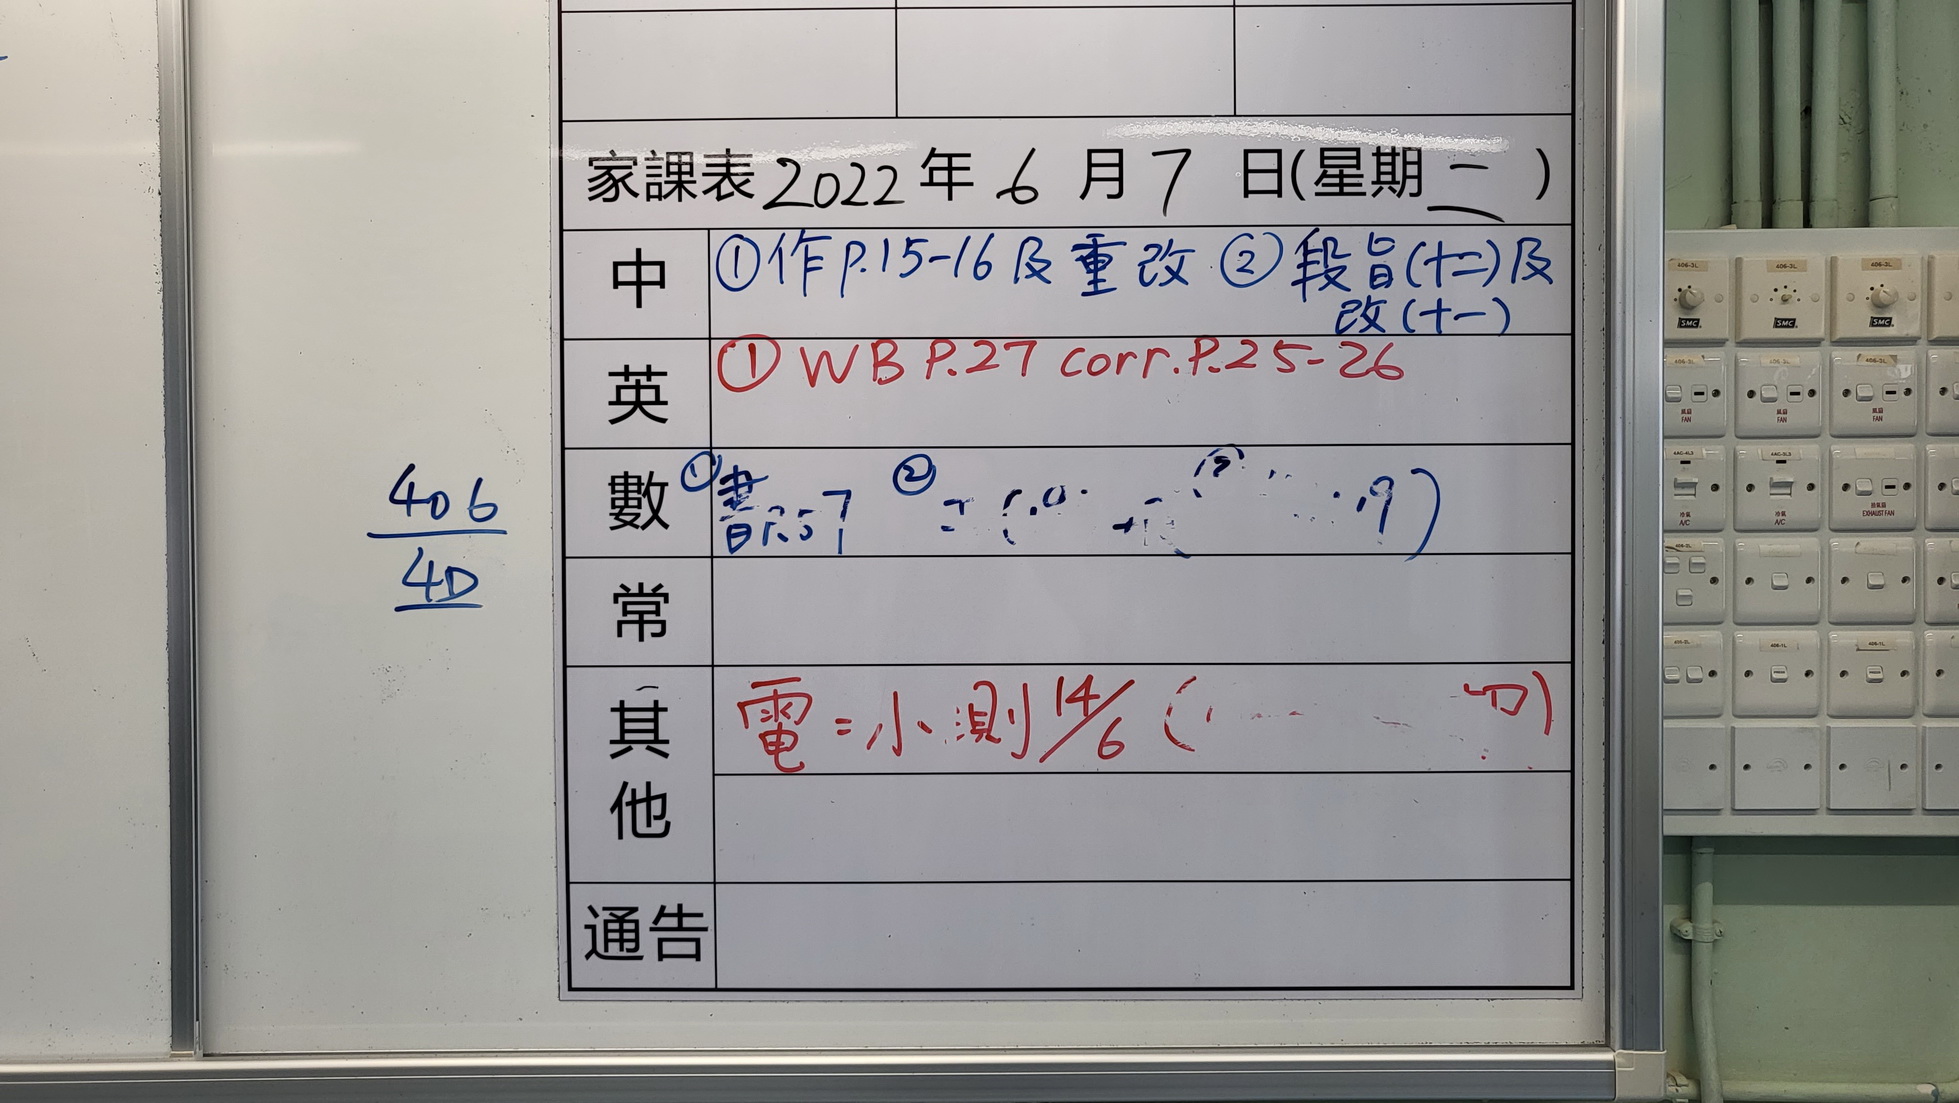 家課表 2022 年 6 月 7 日(星期二)
中 ①作P.15-16及重改 ②段旨(十二)及
改(十一)
英 ①WB P.27 corr. P.25-26
數 ①書P.57 ②
常
其他 電:小測14/6
通告
406
4D
SMC SMC SMC
風扇 風扇 風扇
FAN FAN FAN
冷氣 冷氣
A/C A/C EXHAUST FAN